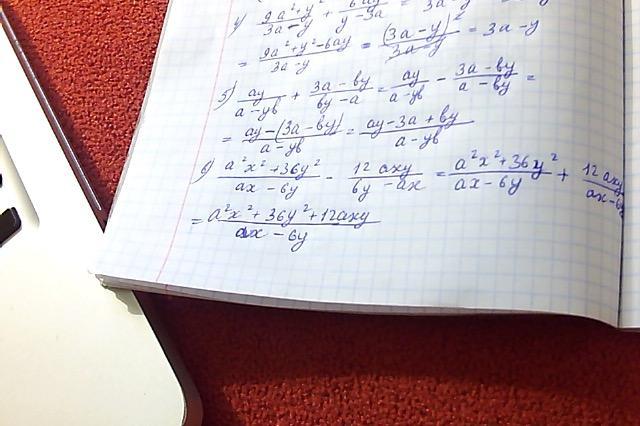 4) (9a²+y²)/(3a-y) + 6ay/(y-3a) =
= (9a²+y²-6ay)/(3a-y) = (3a-y)²/(3a-y) = 3a-y
5) ay/(a-yb) + (3a-by)/(by-a) = ay/(a-yb) - (3a-by)/(a-by) =
= (ay-(3a-by))/(a-yb) = (ay-3a+by)/(a-yb)
6) (a²x²+36y²)/(ax-6y) - 12axy/(6y-ax) = (a²x²+36y²)/(ax-6y) + 12axy/(ax-6y)
= (a²x²+36y²+12axy)/(ax-6y)